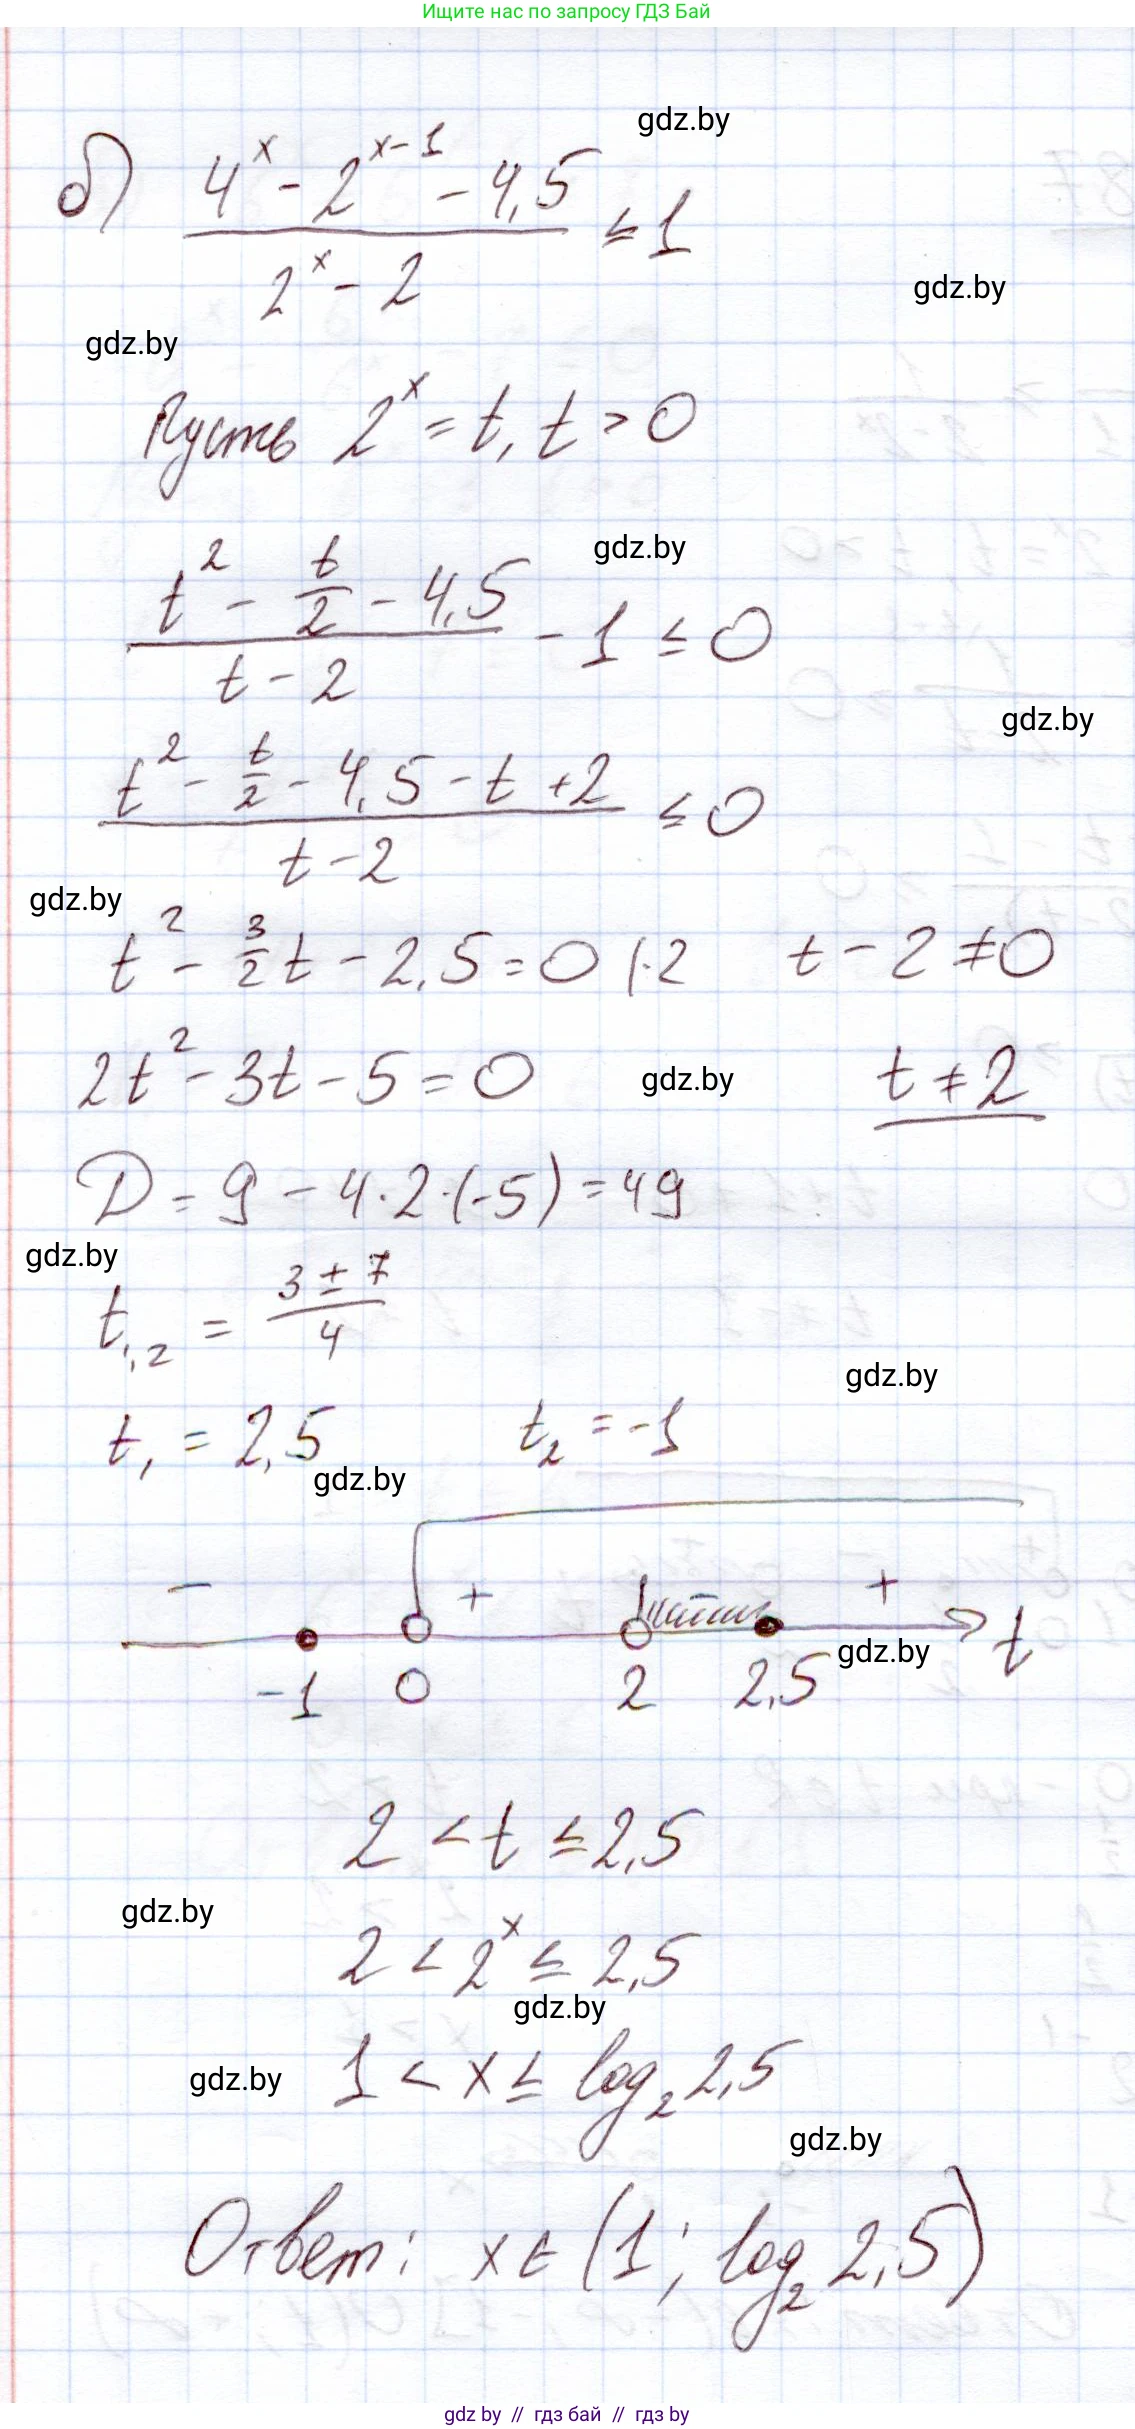 Ищите нас по запросу ГДЗ Бай
gdz.by
б) (4^x - 2^(x-1) - 4,5) / (2^x - 2) ≤ 1
gdz.by
gdz.by
Пусть 2^x = t, t > 0
gdz.by
(t^2 - t/2 - 4,5) / (t - 2) - 1 ≤ 0
gdz.by
(t^2 - t/2 - 4,5 - t + 2) / (t - 2) ≤ 0
gdz.by
t^2 - 3/2 t - 2,5 = 0 |·2 t - 2 ≠ 0
2t^2 - 3t - 5 = 0 gdz.by t ≠ 2
D = 9 - 4·2·(-5) = 49
gdz.by
t1,2 = (3 ± 7) / 4
gdz.by
t1 = 2,5 t2 = -1
gdz.by
- + - +
gdz.by t
-1 0 2 2,5
2 < t ≤ 2,5
gdz.by
2 < 2^x ≤ 2,5
gdz.by
gdz.by 1 < x ≤ log2 2,5
gdz.by
Ответ: x ∈ (1; log2 2,5)
gdz by // гдз бай // гдз by